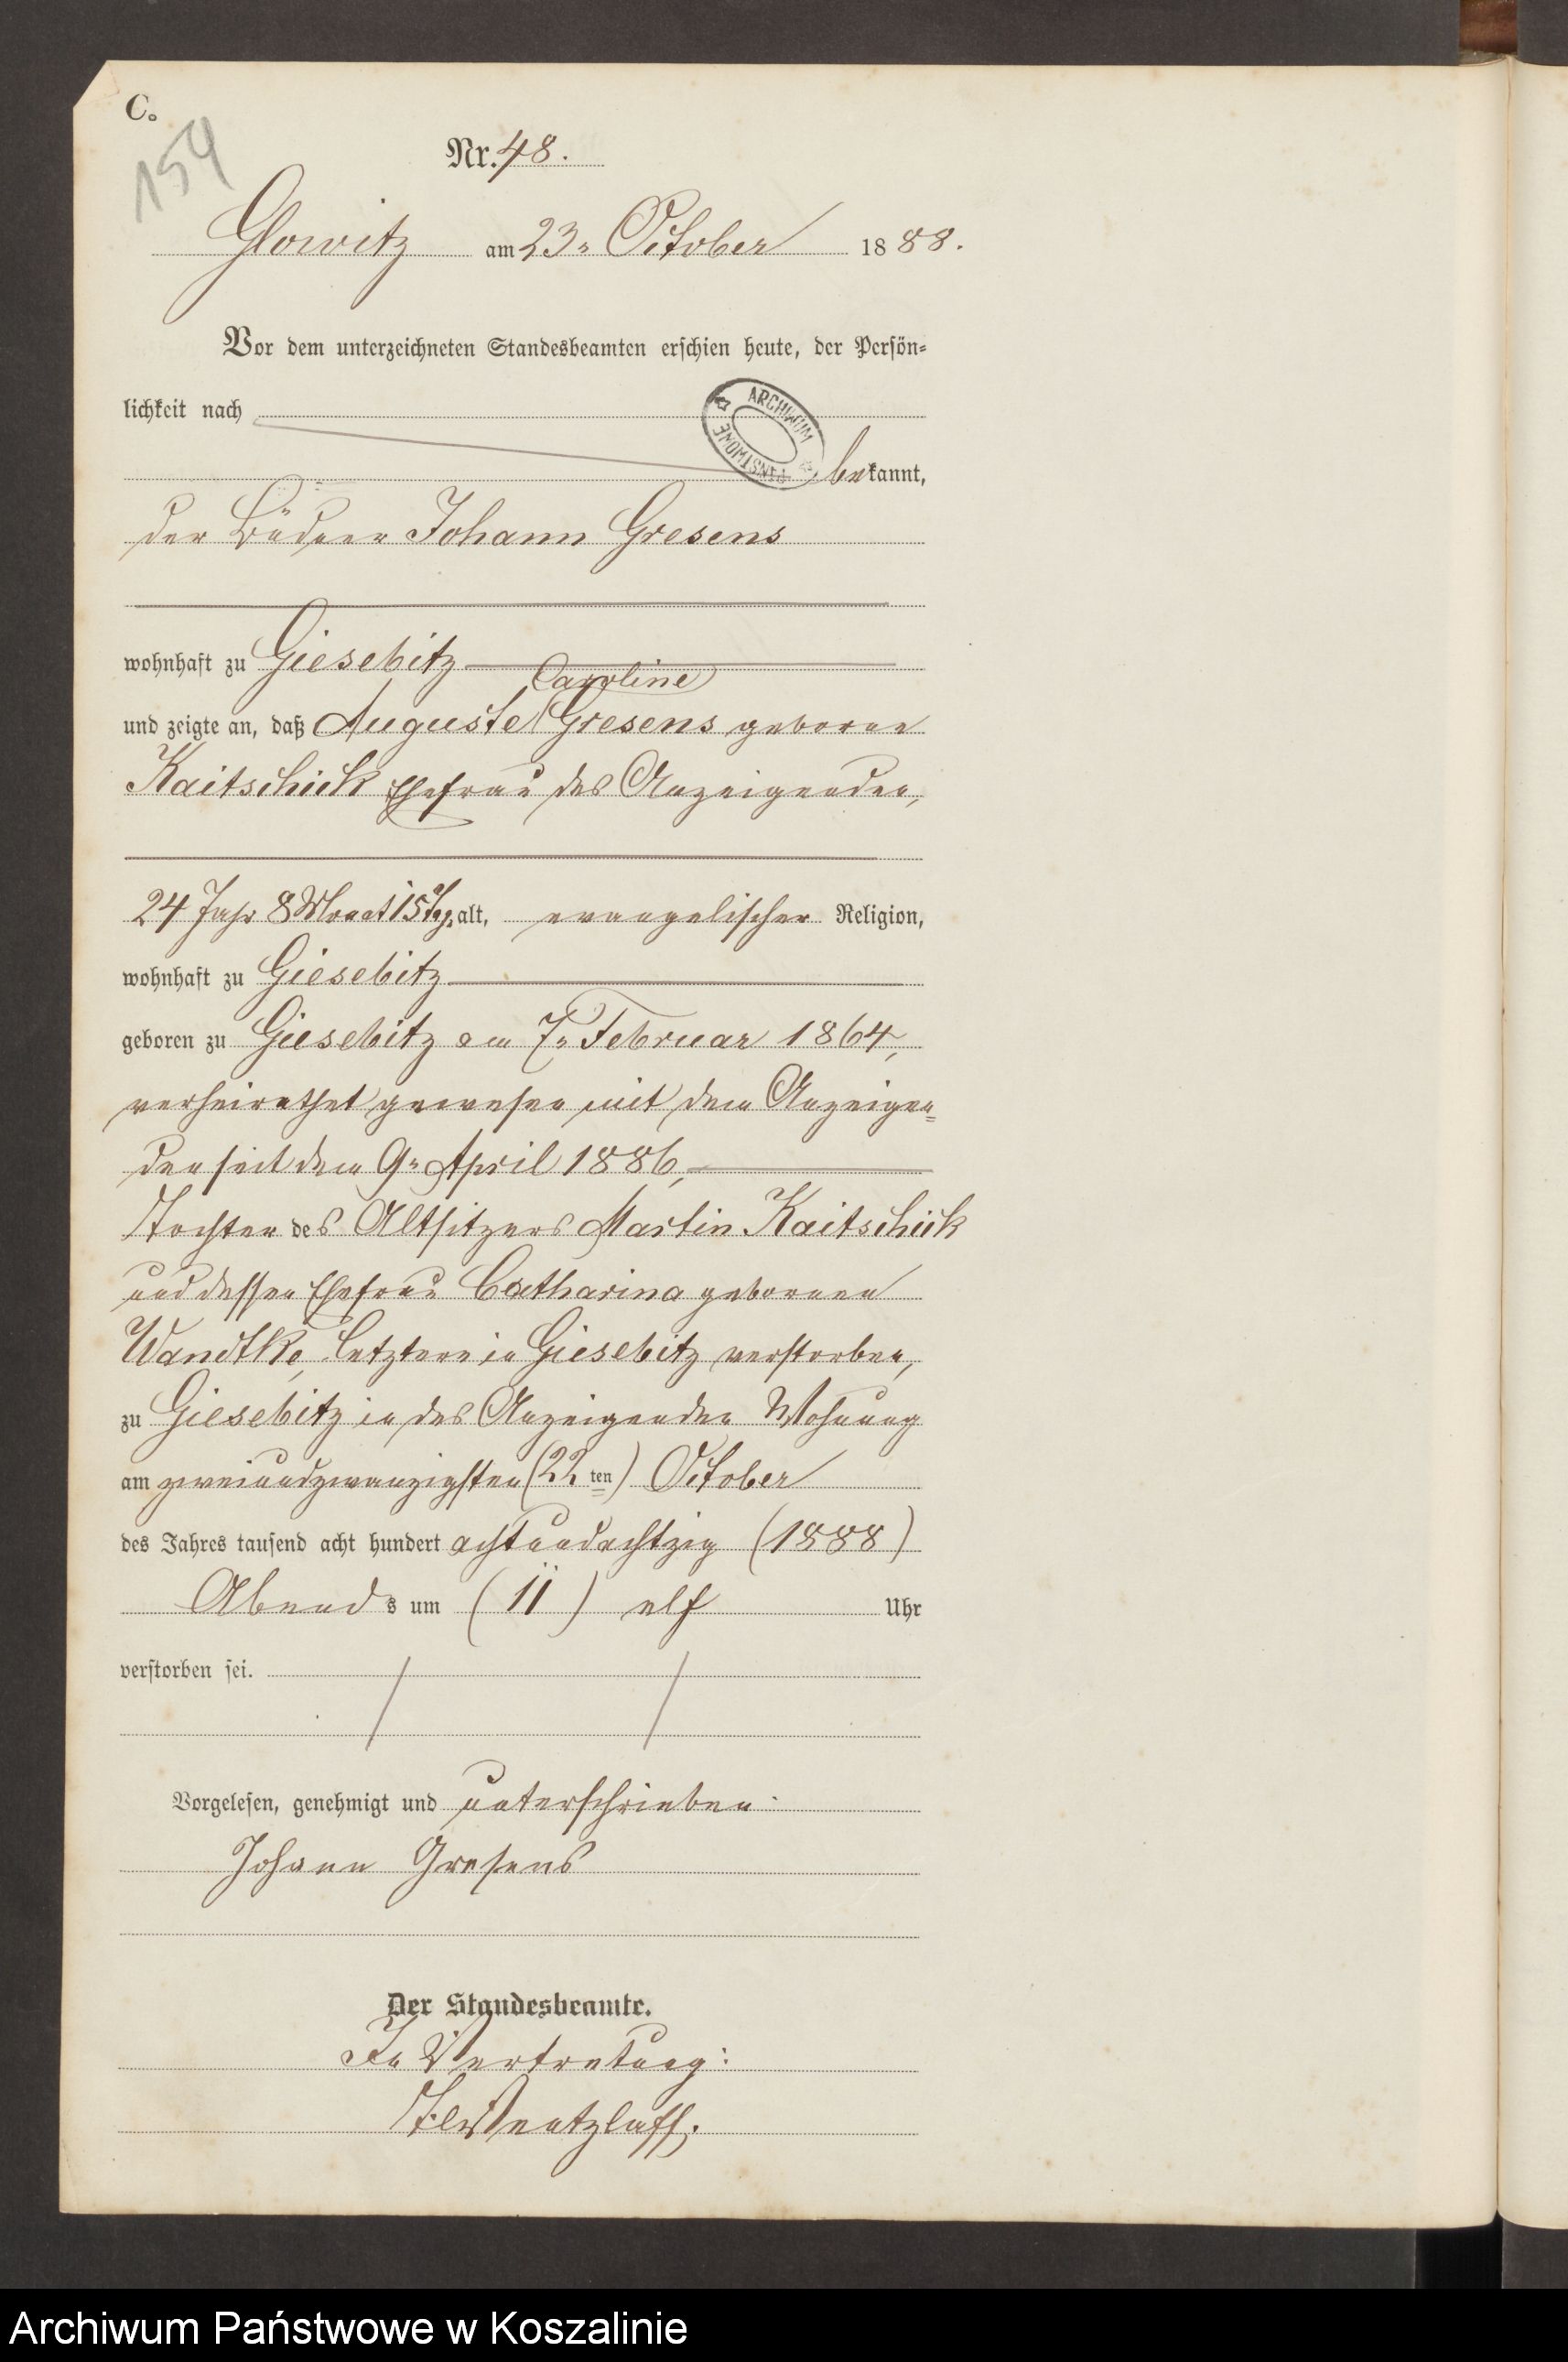 C.
154
Nr. 48.
Glowitz am 23. October 1888.
Vor dem unterzeichneten Standesbeamten erschien heute, der Persön-
lichkeit nach
ARCHIWUM PAŃSTWOWE
bekannt,
der Büdner Johann Gresens
wohnhaft zu Giesebitz
Caroline
und zeigte an, daß Auguste Gresens geborne
Kaitschick Ehefrau des Anzeigenden,
24 Jahr 8 Monat 15 Tag. alt, evangelischer Religion,
wohnhaft zu Giesebitz
geboren zu Giesebitz am 7. Februar 1864,
verheirathet gewesen mit dem Anzeigen=
den seit dem 9. April 1886,
Tochter des Altsitzers Martin Kaitschick
und dessen Ehefrau Catharina gebornen
Wandtke, letztere in Giesebitz verstorben,
zu Giesebitz in des Anzeigenden Wohnung
am zweiundzwanzigsten (22ten) October
des Jahres tausend acht hundert achtundachtzig (1888)
Abends um (11) elf Uhr
verstorben sei.
Vorgelesen, genehmigt und unterschrieben:
Johann Gresens
Der Standesbeamte.
In Vertretung:
Wentzlaff.
Archiwum Państwowe w Koszalinie